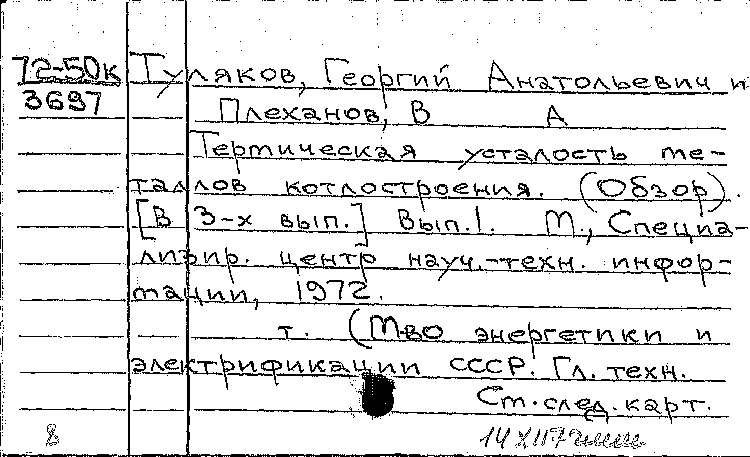 72-50к Туляков, Георгий Анатольевич и
3697 Плеханов, В А
Термическая усталость ме-
таллов котлостроения. (Обзор).
[В 3-х вып.] Вып.1. М., Специа-
лизир. центр науч.-техн. инфор-
мации, 1972.
т. (М-во энергетики и
электрификации СССР. Гл. техн.
См. след. карт.
8